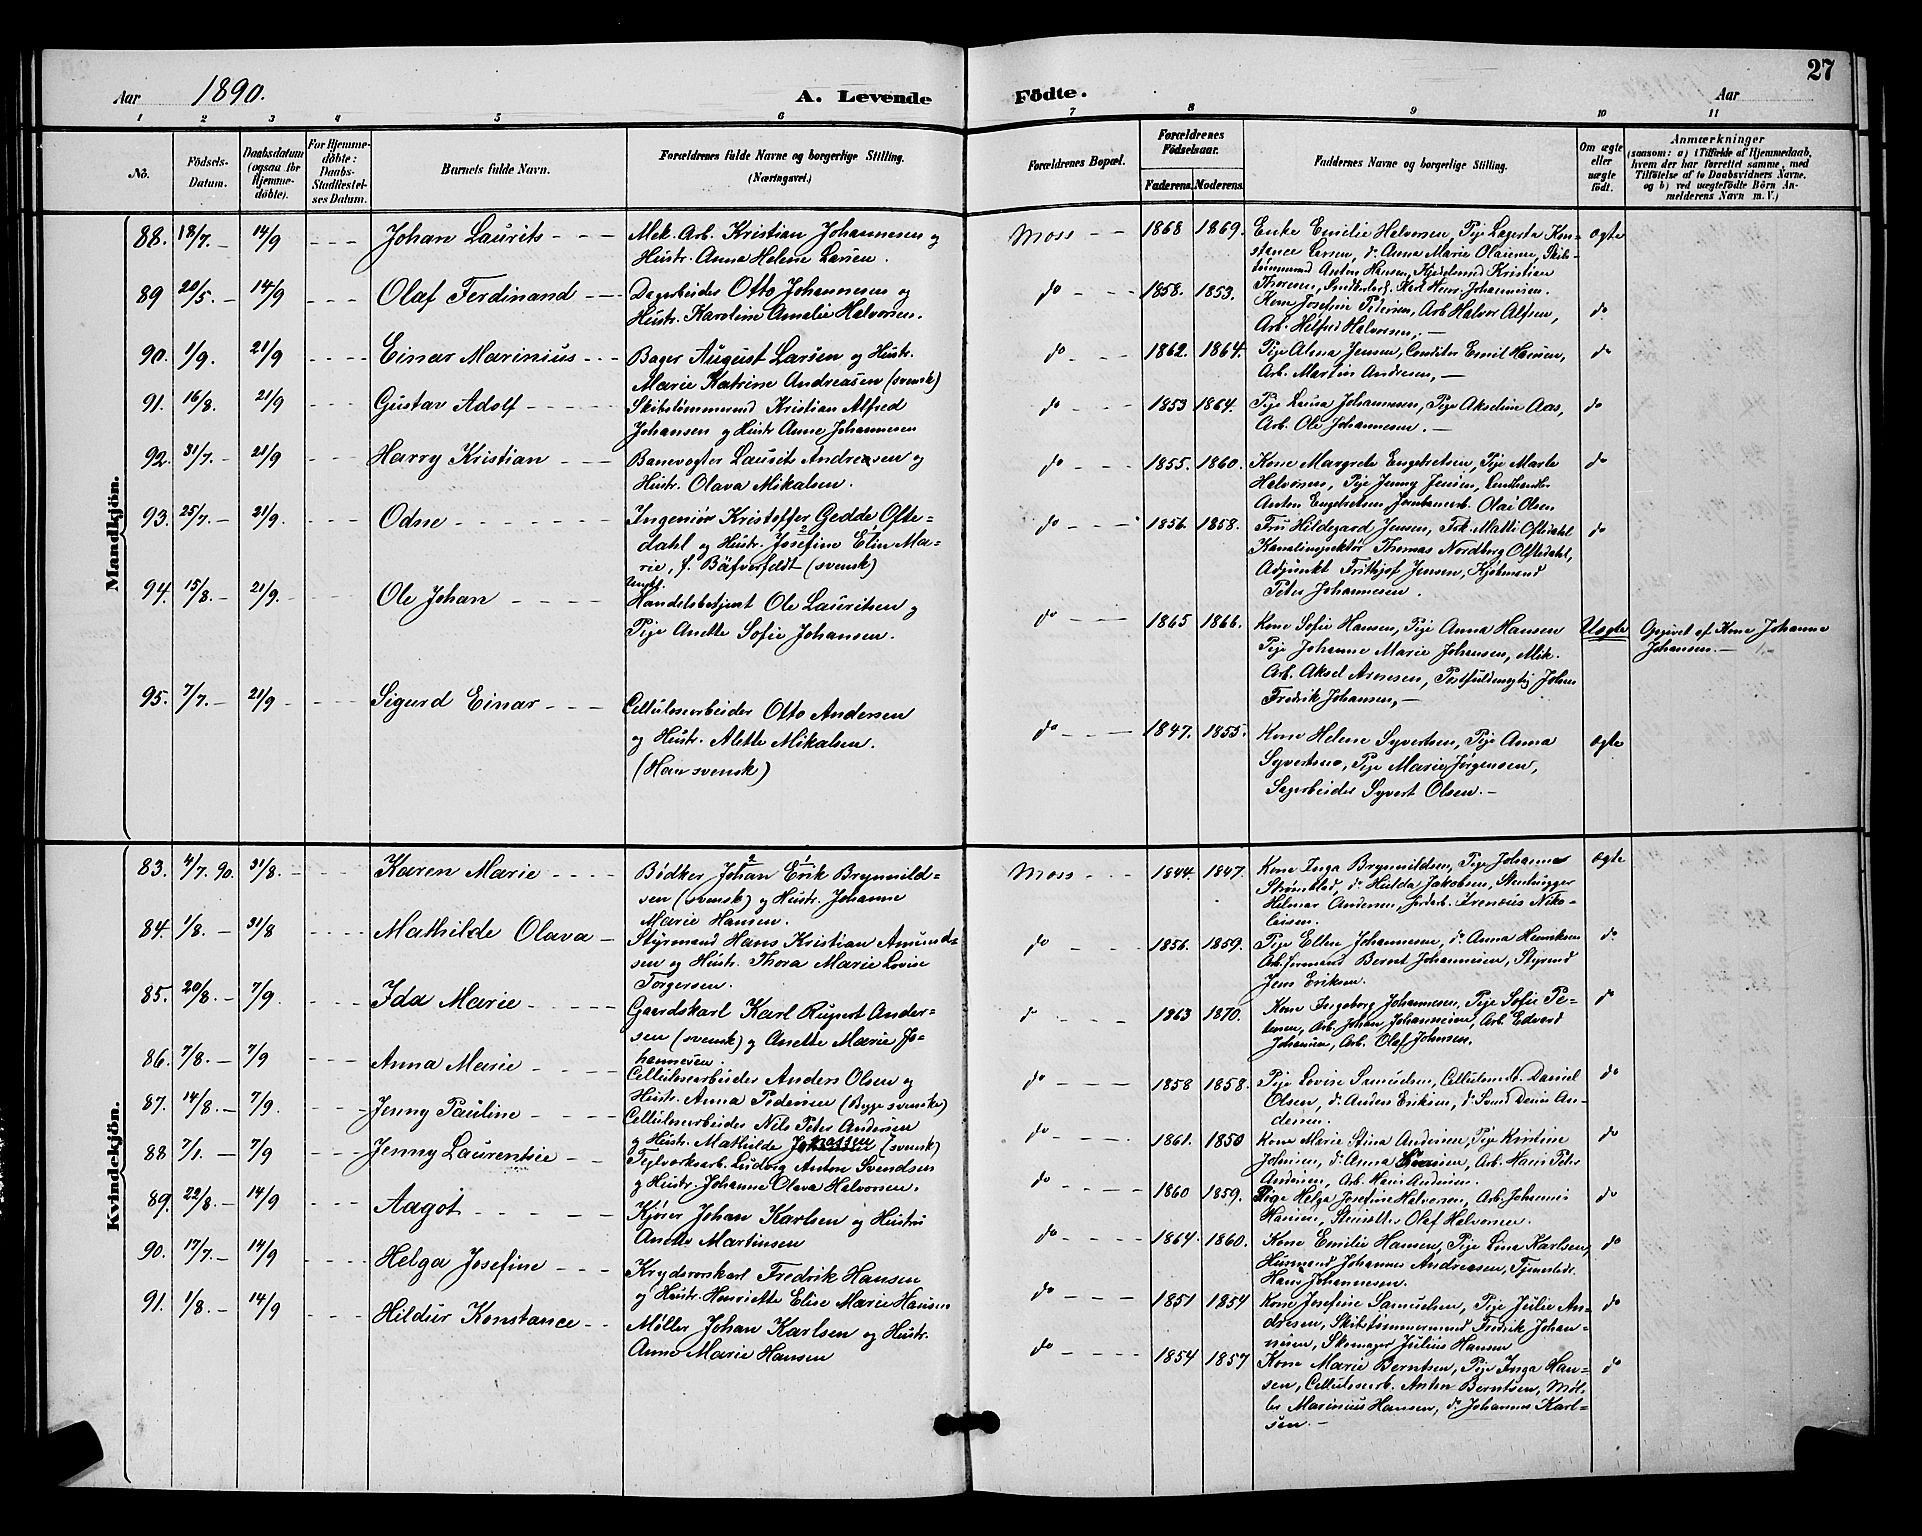 27
Aar 1890. A. Levende Födte. Aar
1 2 3 4 5 6 7 8 9 10 11
No. Födsels-Datum. Daabsdatum (ogsaa for Hjemme-döbte). For Hjemme-döbte: Daabs-Stadfæstel-ses Datum. Barnets fulde Navn. Forældrenes fulde Navne og borgerlige Stilling. (Næringsvei.) Forældrenes Bopæl. Forældrenes Födselsaar. Faderens. Moderens. Faddernes Navne og borgerlige Stilling. Om ægte eller uægte födt. Anmærkninger (saasom: a) i Tilfælde af Hjemmedaab, hvem der har forrettet samme, med Tilföielse af to Daabsvidners Navne. og b) ved uægtefödte Börn An-melderens Navn m. V.)
Mandkjön.
88. 18/7. — 14/9 - - - Johan Laurits - - - Mek. Arb. Kristian Johannesen og
Hustr. Anna Helene Larsen.
Moss - - 1868 1869. Enke Emilie Halvorsen, Pige Lagerta Kon-
stance Larsen, do Anna Marie Olausen, Skibs-
tømmermd Anton Hansen, Kjedelsmd Kristian
Thoresen,
ægte
89 20/5. — 14/9 - - - Olaf Ferdinand - - Dagarbeider Otto Johannesen og
Hustr. Karoline Amalie Halvorsen.
do - - - 1858. 1853.
Kone Josefine Pedersen, Arb. Halvor Alfsen,
Arb. Hilfred Halvorsen, —
do
90. 1/9. 21/9 - - - Einar Marinius - - - Bager August Larsen og Hustr.
Marie Katrine Andreasen (svensk)
do - - - 1862. 1864. Pige Alma Jensen, Conditor Emil Hansen,
Arb. Martin Andresen, —
do
91. 16/8. 21/9 - - - Gustav Adolf - - - - Skibstømmermd Kristian Alfred
Johansen og Hustr Anne Johannesen
do - - - 1853 1864. Pige Laura Johannesen, Pige Akseline Aas,
Arb. Ole Johannesen. —
do
92. 31/7. — 21/9 - - - Harry Kristian - - - Banevogter Laurits Andreasen og
Hustr. Olava Mikalsen.
do - - - 1855. 1860. Kone Margrete Engebretsen, Pige Marte
Halvorsen, Pige Jenny Jensen, Landhandler
Anton Engebretsen, Jernbanearb. Olai Olsen
do
93. 25/7. — 21/9. - - - Odne - - - - - - - Ingeniør Kristoffer Gedde Ofte-
dahl og Hustr. Josefine Elin Ma-
rie, f. Bäfverfeldt (svensk)
do - - - 1856. 1858. Fru Hildegard Jensen, Frk. Matti Oftedahl
Kanalinspektør Thomas Nordberg Oftedahl,
Adjunkt Frithjof Jensen, Kjøbmand
Peter Johannesen.
do
94. 15/8. — 21/9. - - - Ole Johan - - - - Ungk.
Handelsbetjent Ole Lauritsen og
Pige Anette Sofie Johansen.
do - - - 1865 1866. Kone Sofie Hansen, Pige Anna Hansen
Pige Johanne Marie Johansen, Mek.
Arb. Aksel Arnesen, Postfuldmægtig Johan
Fredrik Johansen, —
Uægte Opgivet af Kone Johanne
Johansen. —
95. 7/7. — 21/9 - - - Sigurd Einar - - - Cellulosearbeider Otto Andersen
og Hustr. Alette Mikalsen.
(Han svensk)
do - - - 1847. 1855. Kone Helene Syvertsen, Pige Anna
Syvertsen, Pige Marie Jørgensen,
Sagarbeider Syvert Olsen. —
ægte
Kvindekjön.
83. 4/7. 90. 31/8. — Karen Marie - - - Bødker Johan Erik Brynnild-
sen (svensk) og Hustr. Johanne
Marie Hansen.
Moss - - - 1844. 1847. Kone Inga Brynnildsen, Pige Johanne
Strømstad, do Hulda Jakobsen, Stenhugger
Helmar Andersen, Jordarb. Irenæus Niko-
laisen.
ægte
84. 1/8. — 31/8 - - - Mathilde Olava — Styrmand Hans Kristian Amund-
sen og Hustr. Thora Marie Lovise
Torgersen.
do - - - 1856. 1859. Pige Elen Johannesen, do Anna Henriksen
Arb.formand Bernt Johannesen, Styrmd
Jens Eriksen.
do
85. 20/8. — 7/9. - - - Ida Marie - - - - Gaardskarl Karl Rupert Ander-
sen (svensk) og Anette Marie Jo-
hannesen.
do - - - 1863 1870. Kone Ingeborg Johannesen, Pige Sofie Pe-
tersen, Arb. Johan Johannesen, Arb. Edvard
Johansen, Arb. Olaf Johnsen.
do
86. 7/8. — 7/9 - - - Anna Marie - - - - Cellulosearbeider Anders Olsen og
Hustr. Anna Pedersen (Begge svenske)
do - - - 1858 1858. Pige Lovise Samuelsen, Cellulosearb. Daniel
Olsen, do Anders Eriksen, do Svend Denis An-
dersen.
do
87. 14/8. — 7/9. - - - Jenny Pauline - - - Cellulosearbeider Nils Peter Andersen
og Hustr. Mathilde Jonassen (svensk)
do - - - 1861. 1850 Kone Marie Stina Andersen, Pige Kristine
Johnsen, do Anna Hansen, Arb. Hans Peter
Andersen, Arb. Hans Andersen.
do
88 7/1. — 7/9 - - - Jenny Laurentsie - - Teglværksarb. Ludvig Anton Svendsen
og Hustr. Johanne Olava Halvorsen.
do - - - 1860 1859. Pige Helga Josefine Halvorsen, Arb. Johannes
Hansen, Olaf Halvorsen.
do
89. 22/8. — 14/9 - - - Aagot - - - - Kjører Johan Karlsen og Hustru
Anette Martinsen
do - - - 1864. 1860. Kone Emilie Hansen, Pige Lina Karlsen,
Husmand Johannes Andreasen,
Hans Johannesen.
do
90. 17/7. — 14/9 - - - Helga Josefine - - - Krydsvorskarl Fredrik Hansen
og Hustr. Henriette Elise Marie Hansen
do - - - 1851 1854 Kone Josefine Samuelsen, Pige Julie An-
dresen, Skibstømmermand Fredrik Johan-
nesen, Skomager Julius Hansen
do
91. 1/8. — 14/9 - - - Hildur Konstance - - Møller Johan Karlsen og Hustr.
Anne Marie Hansen
do - - - 1854 1857 Kone Marie Berntsen, Pige Inga Han-
sen, Cellulosearb. Anton Berntsen, Møl-
ler Marinius Hansen, do Johannes Karl-
sen. —
do